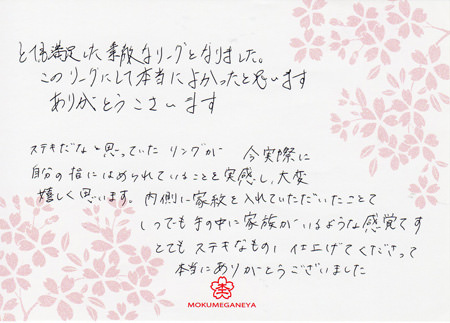 とても満足した素敵なリングとなりました。
このリングにして本当によかったと思います
ありがとうございます
ステキだなと思っていたリングが 今実際に
自分の指にはめられていることを実感し、大変
嬉しく思います。内側に家紋を入れていただいたことで
いつでも手の中に家族がいるような感覚です
とてもステキなものに仕上げてくださって
本当にありがとうございました
MOKUMEGANEYA